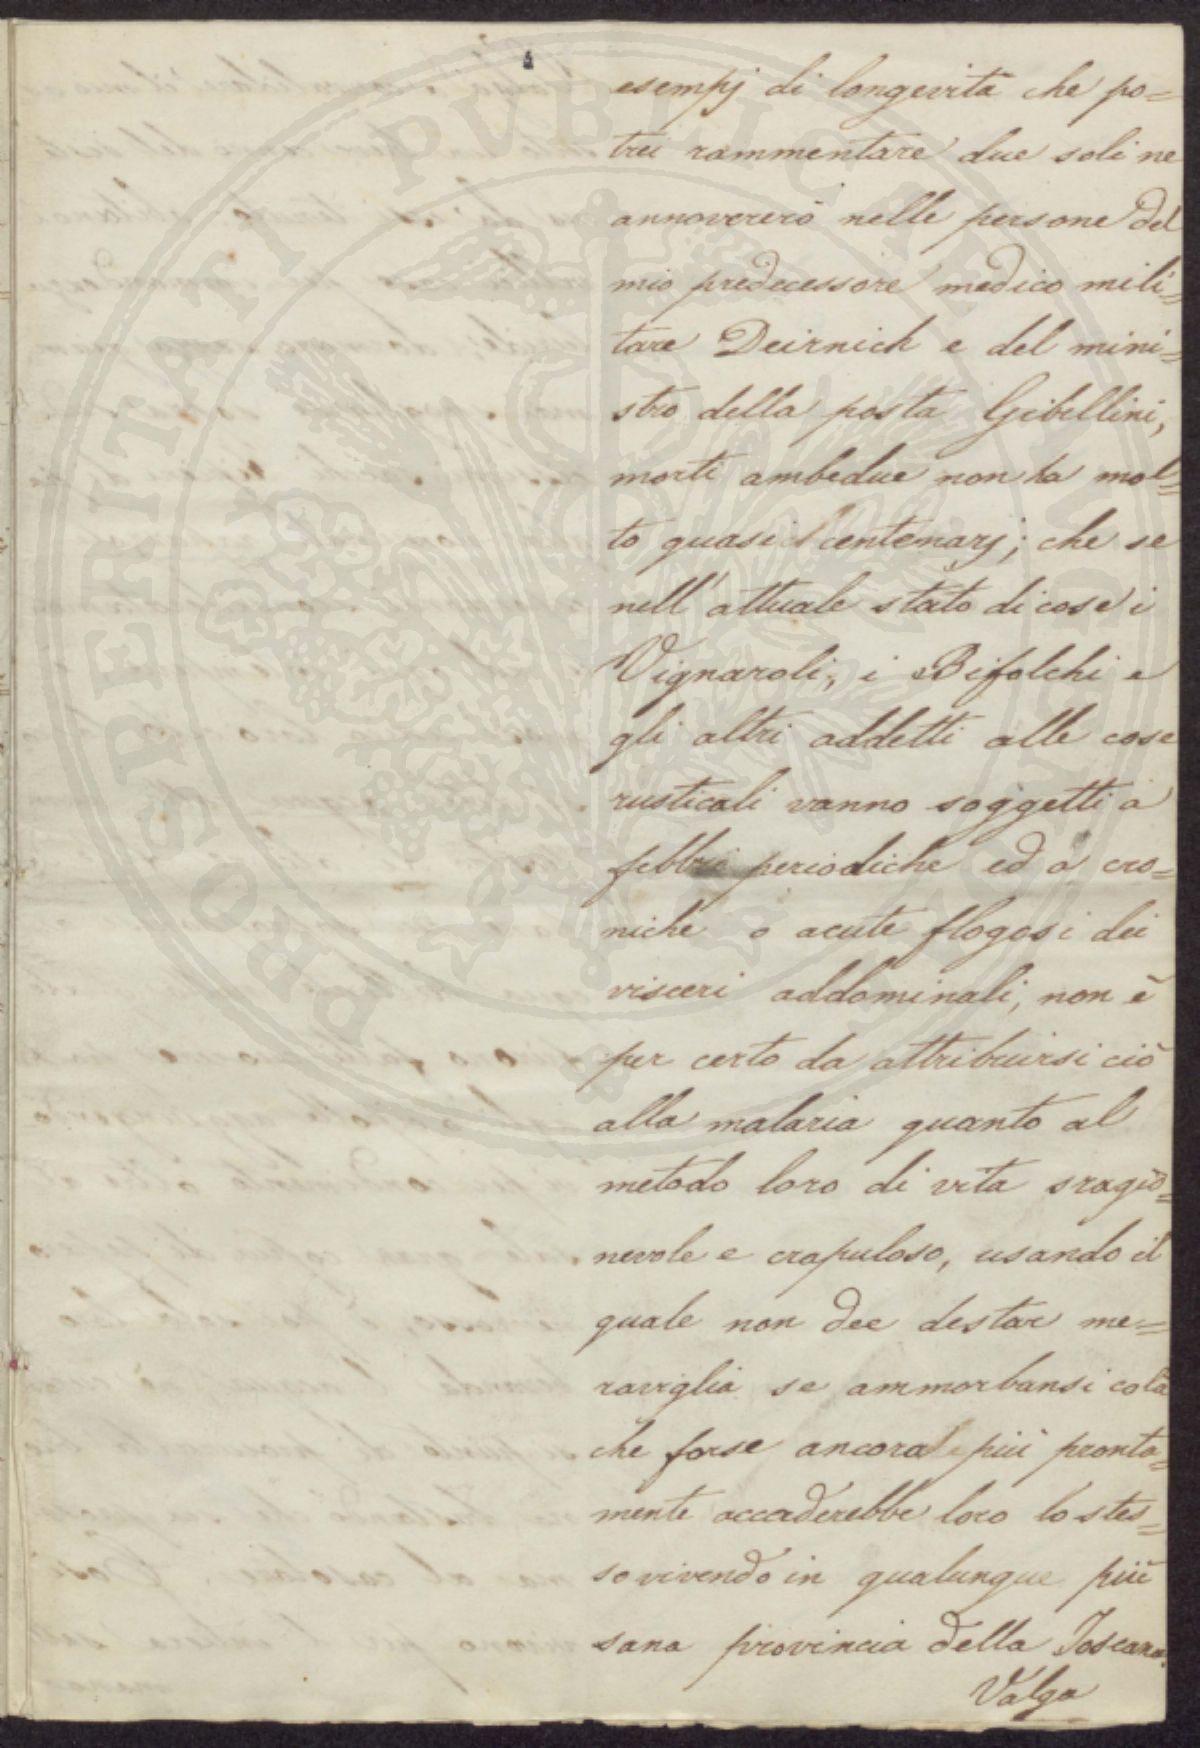 esempj di longevità che po=
trei rammentare due soli ne
annovererò nelle persone del
mio predecessore medico mili=
tare Deirnich e del mini=
stro della posta Gibellini,
morti ambedue non ha mol=
to quasi centenarj; che se
nell'attuale stato di cose i
Vignaroli, i Bifolchi e
gli altri addetti alle cose
rusticali vanno soggetti a
febbri periodiche ed a cro=
niche o acute flogosi dei
visceri addominali, non è
per certo da attribuirsi ciò
alla malaria quanto al
metodo loro di vita sragio=
nevole e crapuloso, usando il
quale non dee destar me=
raviglia se ammorbansi colà
che forse ancora più pronta=
mente accaderebbe loro lo stes=
so vivendo in qualunque più
sana provincia della Toscana.
Valga
PROSPERITATI PUBLICAE